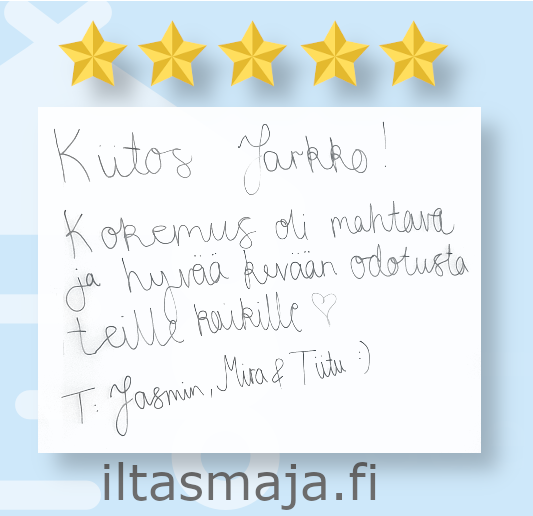 Kiitos Jarkko!
Kokemus oli mahtava
ja hyvää kevään odotusta
teille kaikille ♡
T: Jasmin, Mira & Tiitu :)
iltasmaja.fi